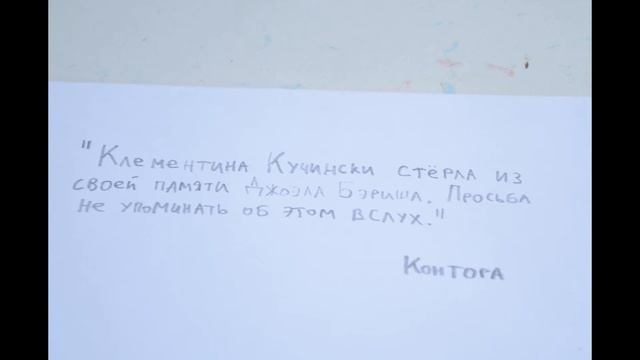 "Клементина Кучински стёрла из
своей памяти Джоэла Бэриша. Просьба
не упоминать об этом вслух."
Контора